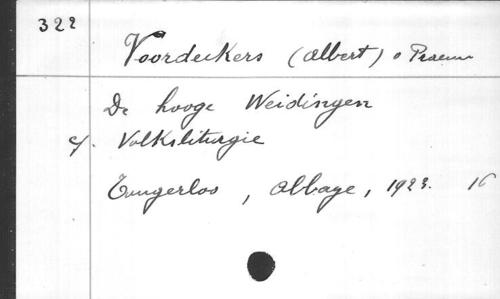 322
Voordeckers (Albert) o Praem
De hooge Weidingen
c/. Volksliturgie
Tongerloo, Abbaye, 1923. 16